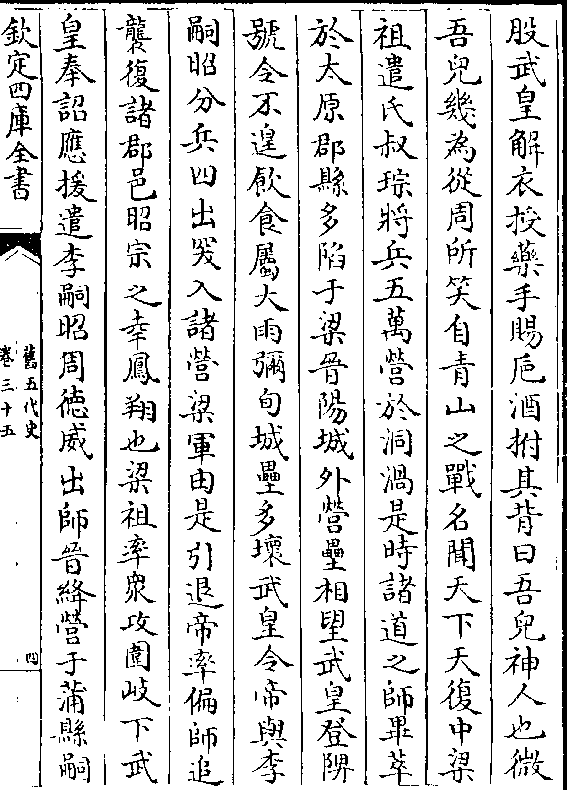 股武皇解衣授藥手賜巵酒拊其背曰吾兒神人也微
吾兒幾為從周所笑自青山之戰名聞天下天復中梁
祖遣氏叔琮將兵五萬營於洞渦是時諸道之師畢萃
於太原郡縣多陷于梁晉陽城外營壘相望武皇登陴
號令不遑飲食屬大雨彌旬城壘多壞武皇令帝與李
嗣昭分兵四出突入諸營梁軍由是引退帝率偏師追
襲復諸郡邑昭宗之幸鳳翔也梁祖率衆攻圍岐下武
皇奉詔應援遣李嗣昭周德威出師晉絳營于蒲縣嗣
欽定四庫全書
舊五代史
卷三十五
四